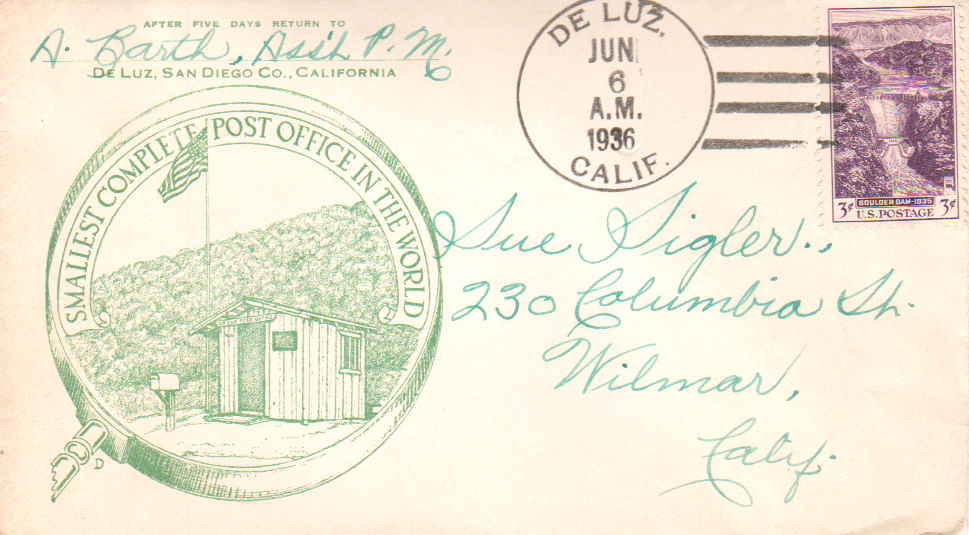 AFTER FIVE DAYS RETURN TO
A. Barth, Ass't P.M.
DE LUZ, SAN DIEGO CO., CALIFORNIA
SMALLEST COMPLETE POST OFFICE IN THE WORLD
D
DE LUZ,
JUN
6
A.M.
1936
CALIF.
BOULDER DAM-1935
3¢ U.S. POSTAGE 3¢
Sue Sigler.,
230 Columbia St.
Wilmar,
Calif.